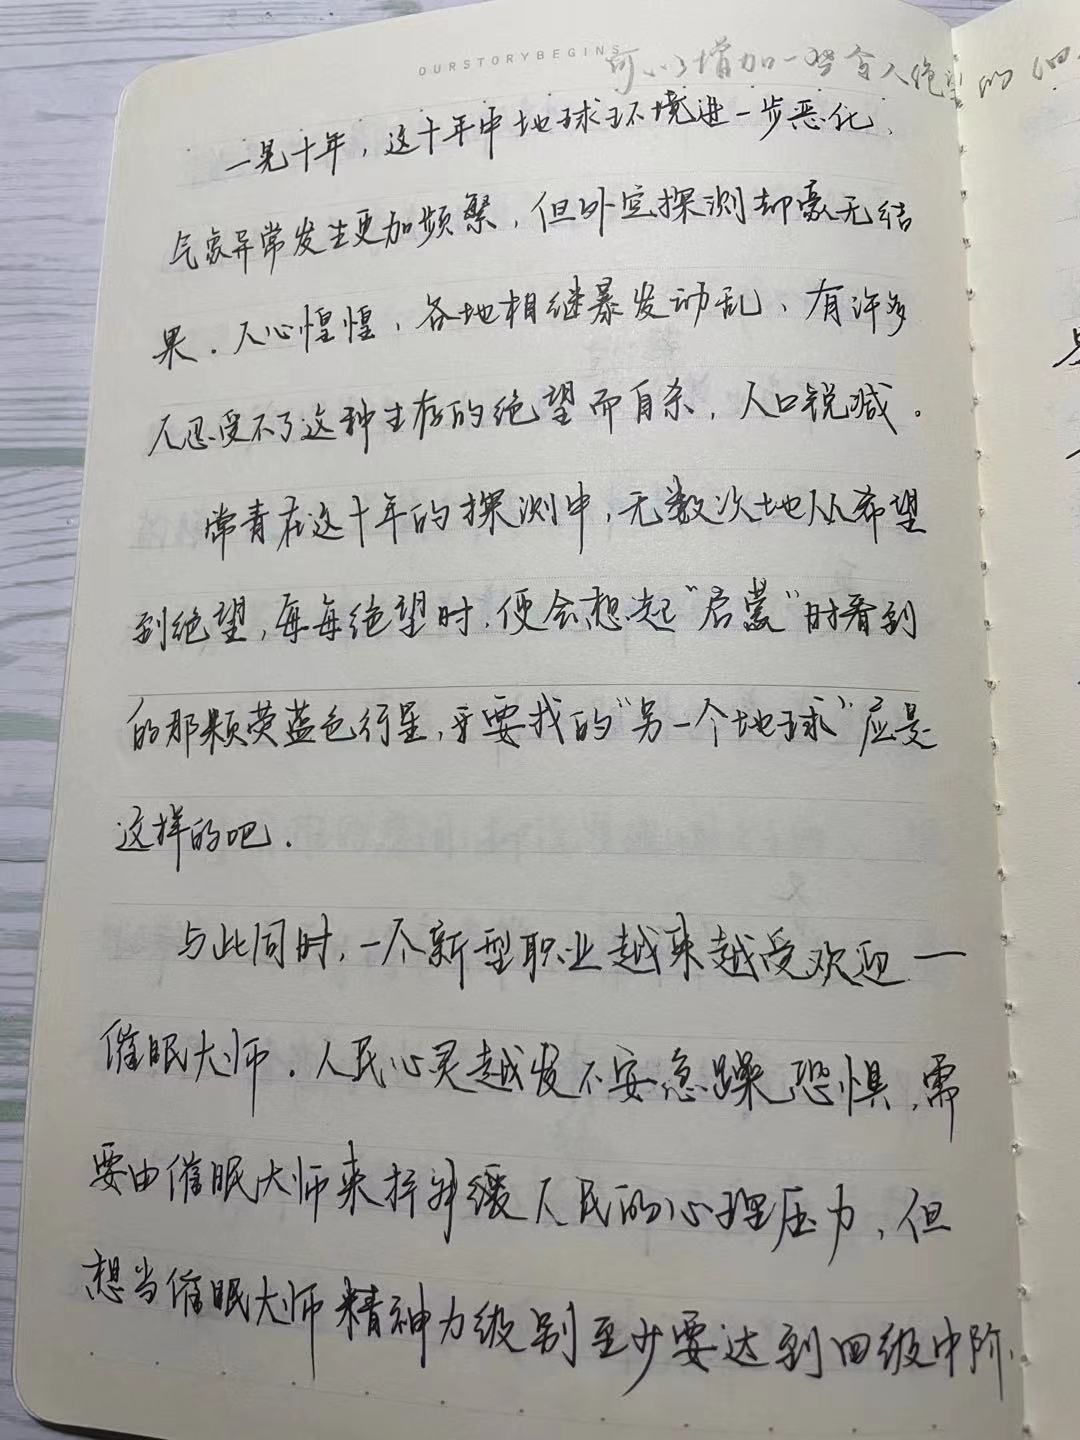 OURSTORYBEGINS
可以增加一些令人绝望的
一晃十年，这十年中地球环境进一步恶化，
气象异常发生更加频繁，但外空探测却毫无结
果．人心惶惶，各地相继暴发动乱、有许多
人忍受不了这种生存的绝望而自杀，人口锐减。
常青在这十年的探测中，无数次地从希望
到绝望，每每绝望时，便会想起“启蒙”时看到
的那颗荧蓝色行星，要找的“另一个地球”应是
这样的吧．
与此同时，一个新型职业越来越受欢迎—
催眠大师．人民心灵越发不安急躁恐惧，需
要由催眠大师来缓人民的心理压力，但
想当催眠大师精神力级别至少要达到四级中阶．